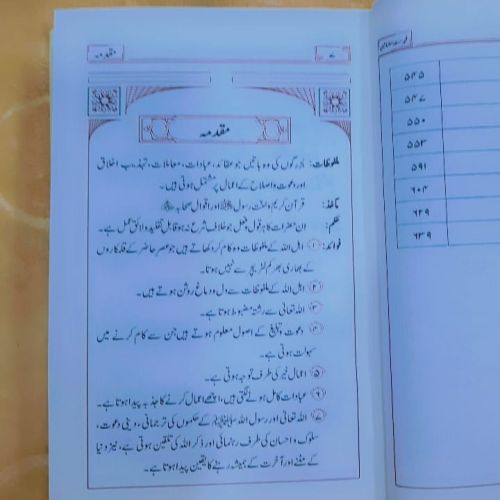 مقدمہ
۷
مقدمہ
ملفوظات: بزرگوں کی وہ باتیں جو عقائد، عبادات، معاملات، تہذیب اخلاق
اور دعوت واصلاح کے اعمال پر مشتمل ہوتی ہیں۔
ماخذ: قرآن کریم وسنت رسول ﷺ اور اقوال صحابہ
حکم: ان حضرات کا ہر قول وفعل جو خلاف شرع نہ ہو قابل تقلید ولائق عمل ہے۔
فوائد: ۱ اہل اللہ کے ملفوظات وہ کام کر دکھاتے ہیں جو عصر حاضر کے قلمکاروں
کے بھاری بھر کم لٹریچر سے نہیں ہوتا۔
۲ اہل اللہ کے ملفوظات سے دل ودماغ روشن ہوتے ہیں۔
۳ اللہ تعالیٰ سے رشتہ مضبوط ہوتا ہے۔
۴ دعوت وتبلیغ کے اصول معلوم ہوتے ہیں جن سے کام کرنے میں
سہولت ہوتی ہے۔
۵ اعمال خیر کی طرف توجہ ہوتی ہے۔
۶ عبادات کامل ہونے لگتی ہیں، اچھے اعمال کرنے کا جذبہ پیدا ہوتا ہے۔
۷ اللہ تعالیٰ اور رسول اللہ ﷺ کے حکموں کی ترجمانی، دینی دعوت،
سلوک واحسان کی طرف رہنمائی اور ذکر اللہ کی تلقین ہوتی ہے، نیز دنیا
کے مٹنے اور آخرت کے ہمیشہ رہنے کا یقین پیدا ہوتا ہے۔
فہرست مضامین
۵۴۵
۵۴۷
۵۵۰
۵۵۳
۵۹۱
۶۰۴
۶۲۹
۶۳۹